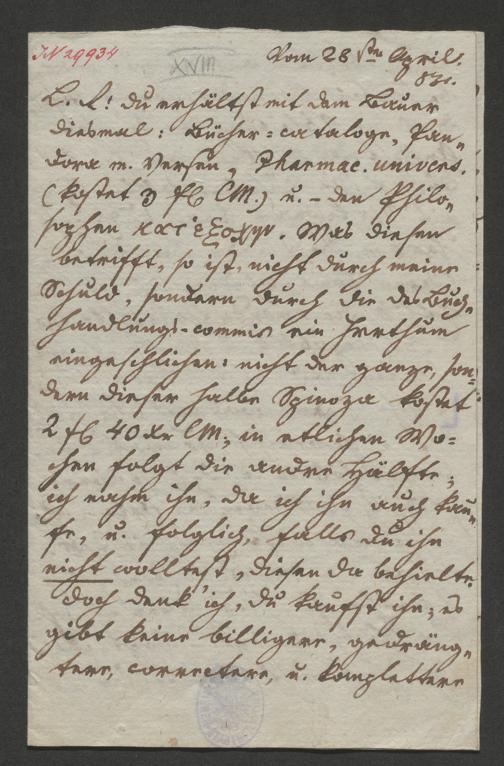 IN 29934
XVIII
Vom 28sten April.
831.
L. L! du erhältst mit dem Bauer
diesmal: Bücher=cataloge, Pan„
dora m. Versen, Pharmac. univers.
(kostet 3 fl CM.) u. – den Philo„
sophen κατ' ἐξοχην. Was diesen
betrifft, so ist, nicht durch meine
Schuld, sondern durch die des Buch„
handlungs-commis ein Irrthum
eingeschlichen: nicht der ganze, son„
dern dieser halbe Spinoza kostet
2 fl 40 Xr CM; in etlichen Wo=
chen folgt die andre Hälfte;
ich nahm ihn, da ich ihn auch kau„
fe, u. folglich, falls du ihn
nicht wolltest, diesen da behielte.
doch denk' ich, du kaufst ihn; es
gibt keine billigere, gedräng„
tere, correctere, u. komplettere